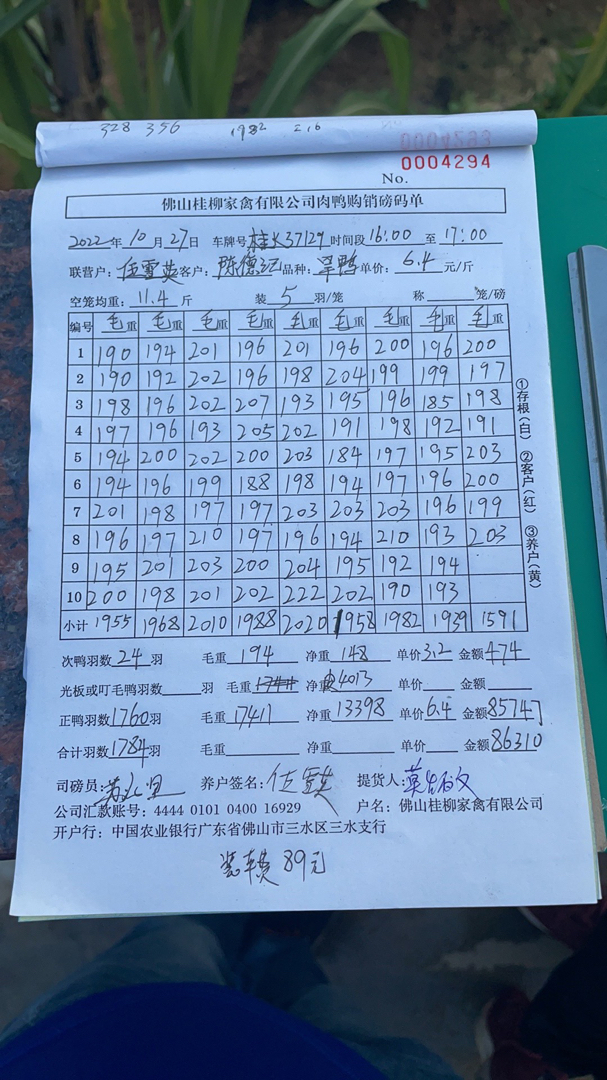 328 356 1982 216
0004293
0004294
No.
佛山桂柳家禽有限公司肉鸭购销磅码单
2022年10月27日 车牌号桂K37129时间段16:00至17:00
联营户:任雪英客户:陈德记品种:旱鸭单价:6.4元/斤
空笼均重:11.4斤 装5羽/笼 称 笼/磅
编号 毛重 毛重 毛重 毛重 毛重 毛重 毛重 毛重 毛重
1 190 194 201 196 201 196 200 196 200
2 190 192 202 196 198 204 199 199 197
3 198 196 202 207 193 195 196 185 198
4 197 196 193 205 202 191 198 192 191
5 194 200 202 200 203 184 197 195 203
6 194 196 199 188 198 194 197 196 200
7 201 198 197 197 203 203 203 196 199
8 196 197 210 197 196 194 210 193 203
9 195 201 203 200 204 195 192 194
10 200 198 201 202 222 202 190 193
小计 1955 1968 2010 1988 2020 1958 1982 1939 1591
①存根(白) ②客户(红) ③养户(黄)
次鸭羽数24羽 毛重194 净重148 单价3.2 金额474
光板或叮毛鸭羽数 羽 毛重 净重4013 单价 金额
正鸭羽数1760羽 毛重17411 净重13398 单价6.4 金额85747
合计羽数1784羽 毛重 净重 单价 金额86310
司磅员: 养户签名:任雪英 提货人:
公司汇款账号:4444 0101 0400 16929 户名:佛山桂柳家禽有限公司
开户行:中国农业银行广东省佛山市三水区三水支行
装车费 89元